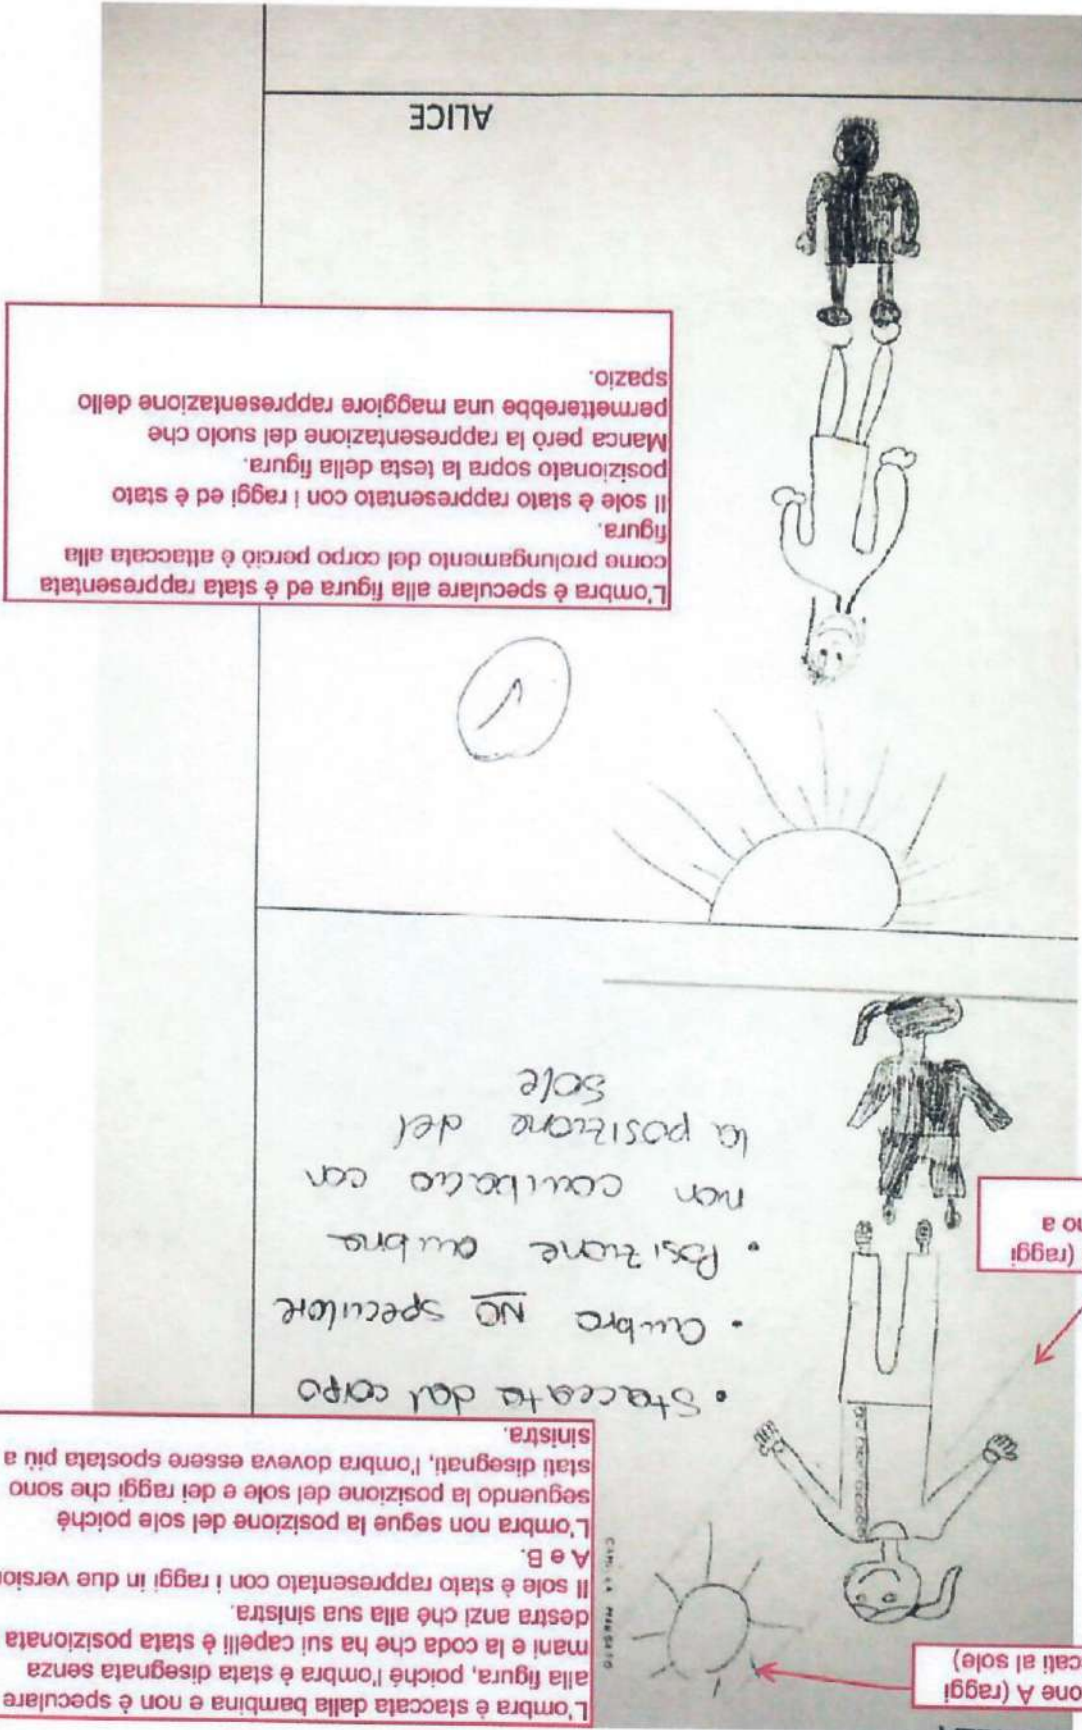 one A (raggi
cati al sole)
L'ombra è staccata dalla bambina e non è speculare
alla figura, poiché l'ombra è stata disegnata senza
mani e la coda che ha sui capelli è stata posizionata
destra anzi ché alla sua sinistra.
Il sole è stato rappresentato con i raggi in due version
A e B.
L'ombra non segue la posizione del sole poiché
seguendo la posizione del sole e dei raggi che sono
stati disegnati, l'ombra doveva essere spostata più a
sinistra.
• Staccata dal corpo
• Ombra NO speculare
• Posizione ombra
non combacia con
la posizione del
sole
(raggi
no a
L'ombra è speculare alla figura ed è stata rappresentata
come prolungamento del corpo perciò è attaccata alla
figura.
Il sole è stato rappresentato con i raggi ed è stato
posizionato sopra la testa della figura.
Manca però la rappresentazione del suolo che
permetterebbe una maggiore rappresentazione dello
spazio.
ALICE